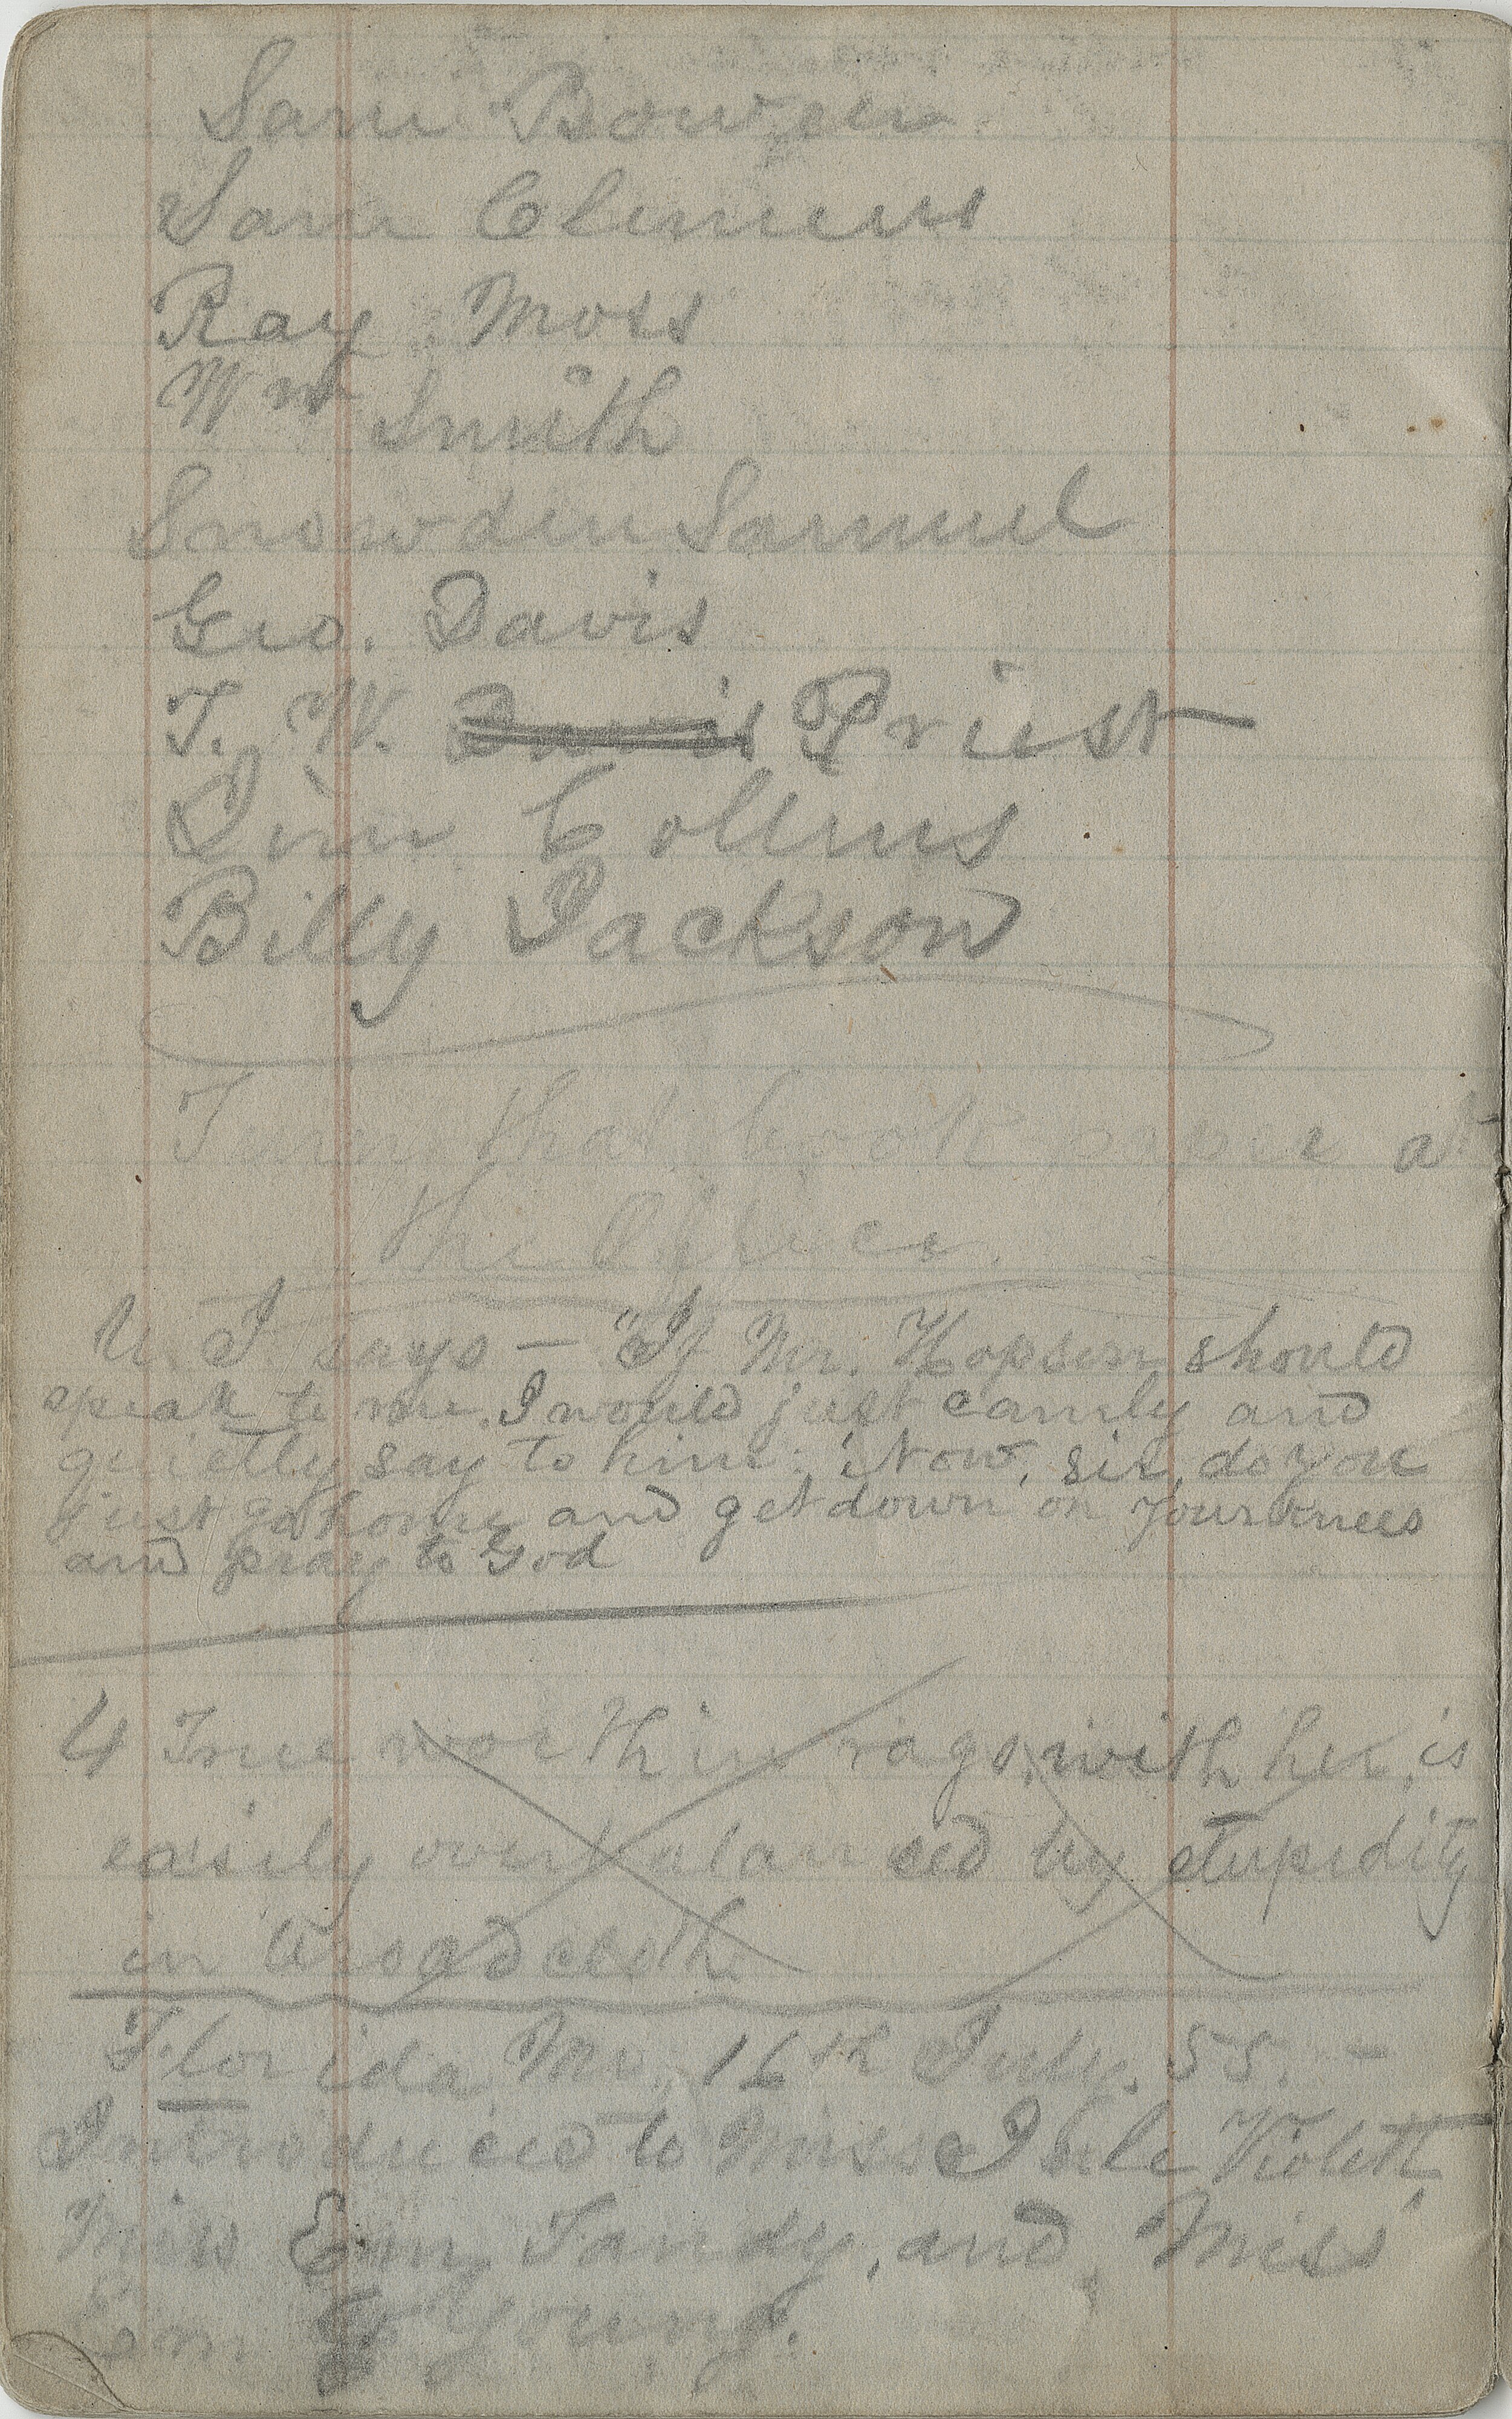 Sam Bowen.
Sam Clemens
Ray. Moss
Wm Smith
Snowden Samuel
Geo. Davis
T. W. Davis Priest
Jim Collins
Billy Jackson
Turn that book paper at
the Office.
U. J. says — "If Mr. Hopson should
speak to me, I would just camly and
quietly say to him: 'Now, sir, do you
just go home and get down on your knees
and pray to God
4 True worth in rags, with her, is
easily overbalanced by stupidity
in broadcloth.
Florida, Mo., 16th July. 55. —
Introduced to Miss Jule Violett,
Miss Em Tandy, and Miss
Em Young.